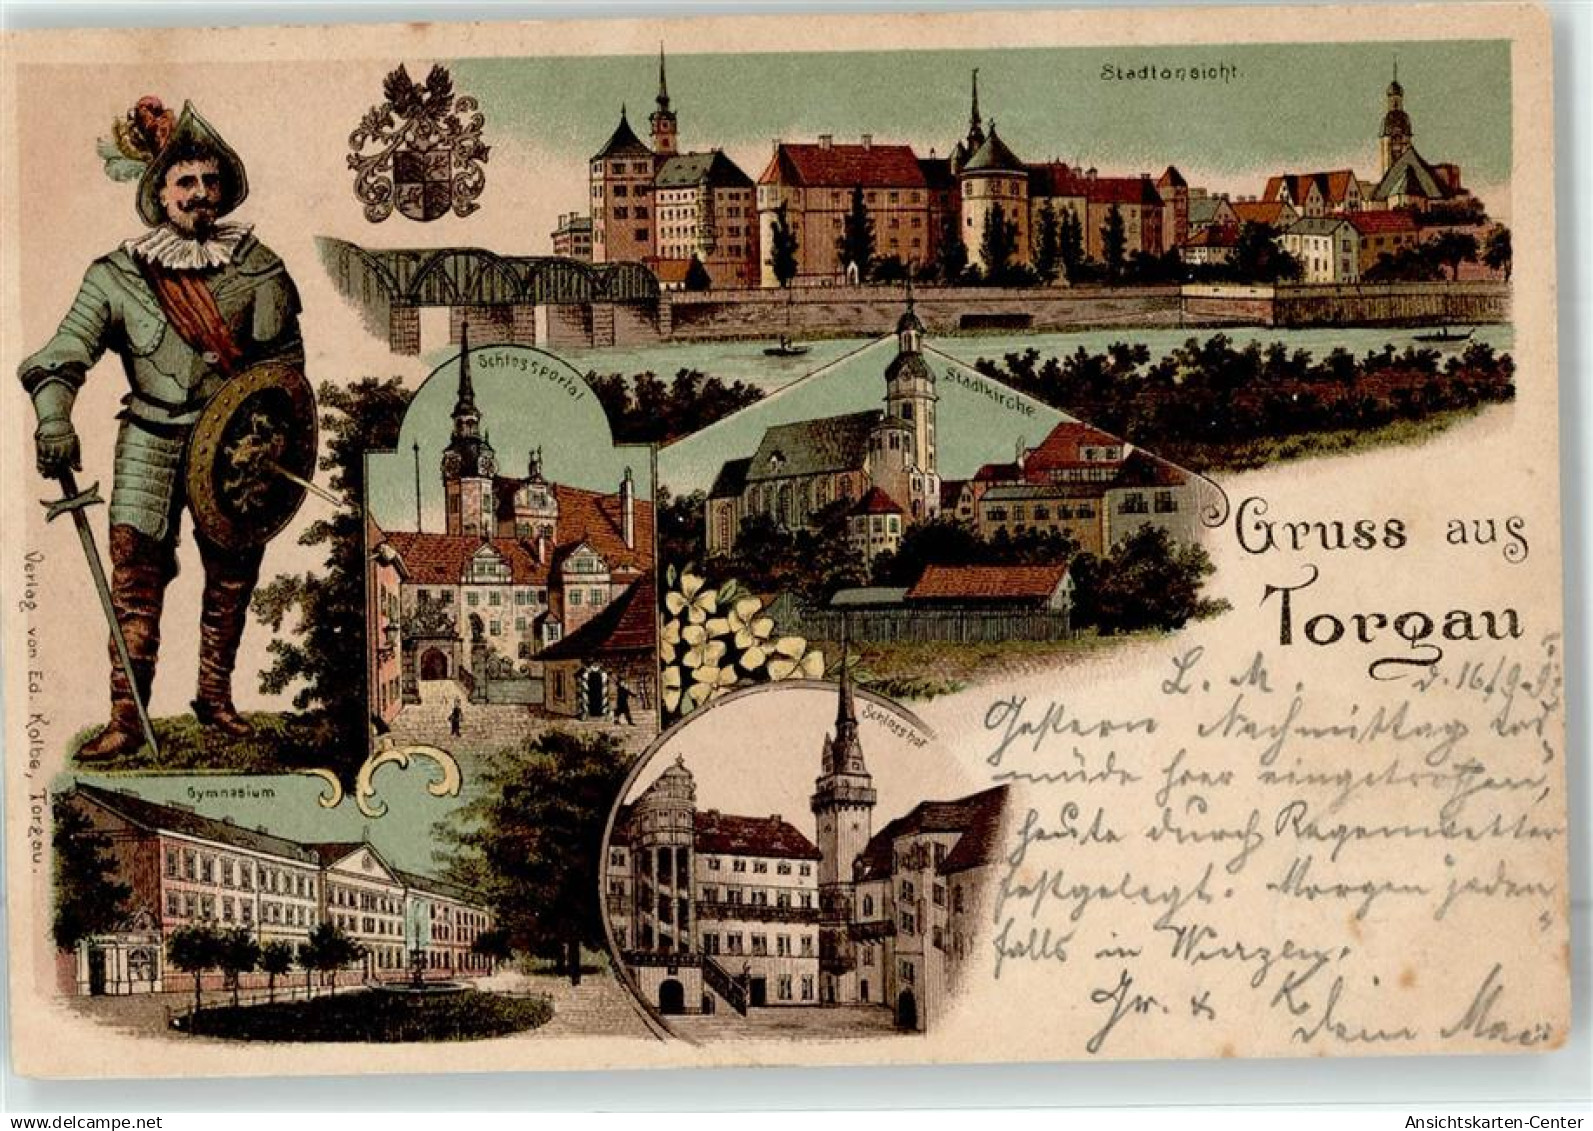 Stadtansicht.
Schlossportal
Stadtkirche
Gruss aus
Torgau
L. M. d. 16/9.
Gestern Nachmittag
müde hier eingetroffen,
heute durch Regenwetter
festgelegt. Morgen jeden
falls in Wurzen.
Gr. & K
Dein Max
Schlosshof
Gymnasium
Verlag von Ed. Kolbe, Torgau.
Ansichtskarten-Center